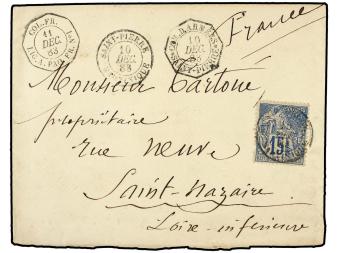 COL. FR.
11
DEC.
83
LIG. A. PAQ. FR.
SAINT-PIERRE
10
DEC.
83
MARTINIQUE
10
DEC.
83
ST PIERRE
France
Monsieur Cartoué,
propriétaire
rue neuve
15
Saint-Nazaire
Loire-inférieure